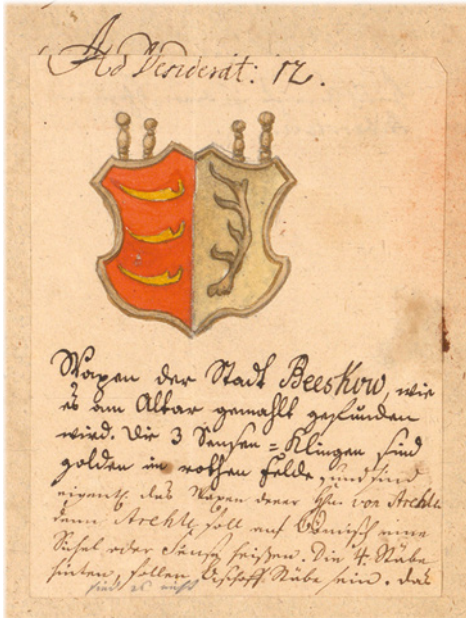 Ad Desiderat: 12.
Wapen der Stadt Beeskow, wie
es am Altar gemahlt gefunden
wird. Die 3 Sensen=Klingen sind
golden in rothen Felde, und sind
eigentl. das Wapen derer Hn. von
denn soll auf Bömisch eine
Sichel oder Sense heißen. Die 4. Stäbe
hinten, sollen Bischoff Stäbe sein. das
sind es nicht